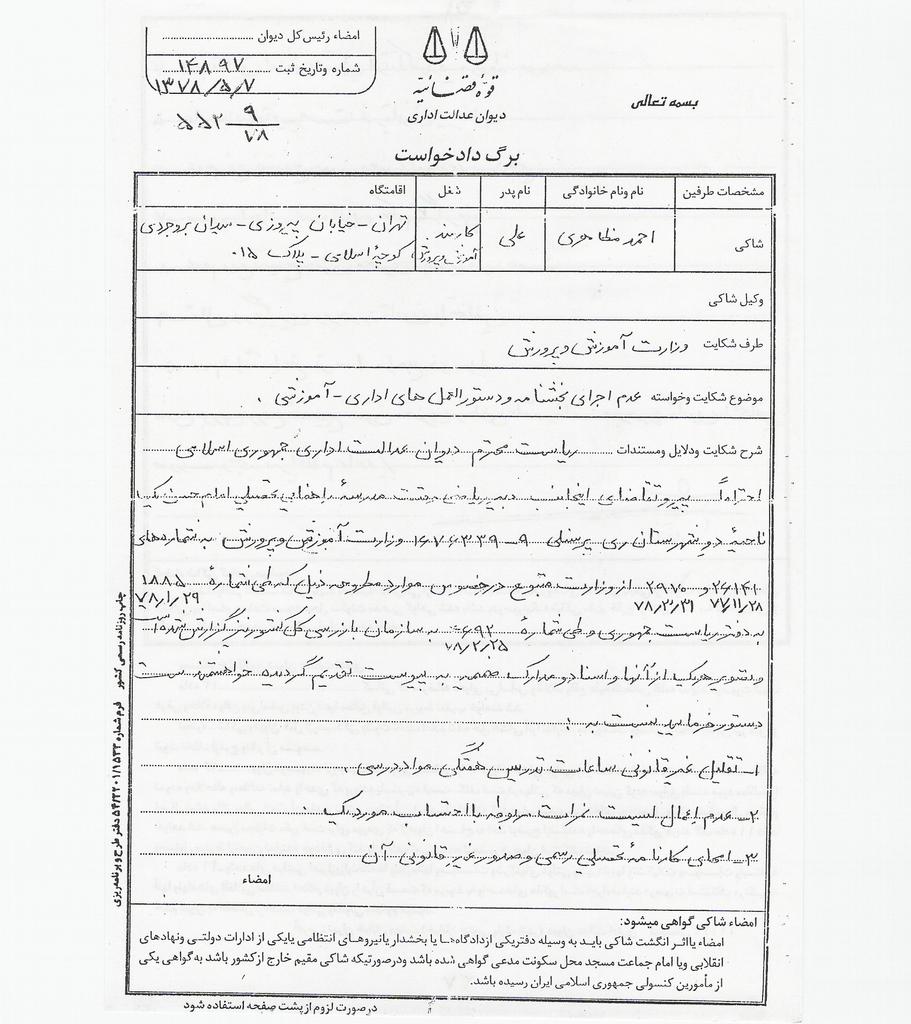 امضاء رئیس کل دیوان ........
شماره وتاریخ ثبت ۱۴۸۹۷
۱۳۷۸/۵/۷
قوهٔ قضائیه
دیوان عدالت اداری
بسمه تعالی
برگ دادخواست
مشخصات طرفین نام ونام خانوادگی نام پدر شغل اقامتگاه
شاکی احمد مظاهری علی کارمند آموزش وپرورش تهران - خیابان پیروزی - میدان بروجردی
کوچهٔ اسلامی - پلاک ۱۵
وکیل شاکی
طرف شکایت وزارت آموزش وپرورش
موضوع شکایت وخواسته عدم اجرای بخشنامه ودستورالعمل های اداری - آموزشی .
شرح شکایت ودلایل ومستندات ریاست محترم دیوان عدالت اداری جمهوری اسلامی
احتراماً پیرو تقاضای اینجانب دبیر ریاضی مدرسهٔ راهنمایی تحصیلی امام حسین یک
ناحیهٔ دو شهرستان ری پرسنلی وزارت آموزش وپرورش به شماره های
و ۲۹۷۰ از وزارت متبوع درخصوص موارد مطروحه ذیل که طی شمارهٔ ۱۸۸۵
۷۷/۱۱/۲۸ ۷۸/۲/۳۱ ۷۸/۱/۲۹
به دفتر ریاست جمهوری و طی شمارهٔ به سازمان بازرسی کل کشور نیز گزارش شده است
۷۸/۲/۲۵
وتصویر هریک از آنها و اسناد و مدارک ضمیمه به پیوست تقدیم گردیده خواهشمند است
دستور فرمایید نسبت به :
۱- تقلیل غیرقانونی ساعات تدریس هفتگی مواد درسی .
۲- عدم اعمال لیست نمرات مربوطه با احتساب مورد یک .
۳- امحای کارنامهٔ تحصیلی رسمی وصدور غیرقانونی آن
امضاء
امضاء شاکی گواهی میشود:
امضاء یااثر انگشت شاکی باید به وسیله دفتریکی ازدادگاه ها یا بخشدار یانیروهای انتظامی یایکی از ادارات دولتی ونهادهای
انقلابی ویا امام جماعت مسجد محل سکونت مدعی گواهی شده باشد ودرصورتیکه شاکی مقیم خارج ازکشور باشد به گواهی یکی
از مأمورین کنسولی جمهوری اسلامی ایران رسیده باشد.
درصورت لزوم ازپشت صفحه استفاده شود
چاپ روزنامه رسمی کشور فرم شماره دفتر طرح و برنامه ریزی